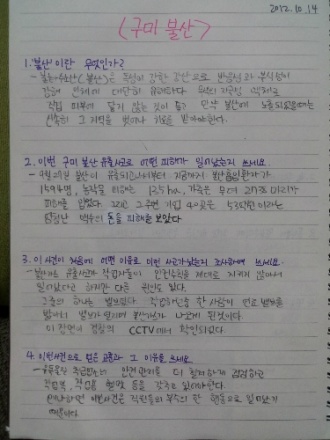 2012.10.14
(구미 불산)
1. '불산'이란 무엇인가?
- 불화수소산(불산)은 독성이 강한 산으로 반응성과 부식성이
강해 인체에 대단히 위험하다.
직접 피부에 닿지 않는 것이 좋고 만약 불산에 노출되었을때는
신속히 그 지역을 벗어나 치료를 받아야한다.
2. 이번 구미 불산 유출사고로 어떤 피해가 일어났는지 쓰세요.
- 불산이 지금까지
1594명, 농작물 피해는 135ha, 가축은 2가조마리가
피해를 입었다. 그리고 주변 기업 40곳은 53억원이라는
엄청난 액수의 돈을 피해를 보았다
3. 이 사건이 처음에 어떤 이유로 이런 사고가 났는지 조사하여 쓰세요.
- 불산가스 유출사고가 작업자들이 안전수칙을 제대로 지키지 않아서
일어났다고 하지만 다른 원인도 있다.
그중의 하나는 작업하던중 한 사람이 연료 밸브를
밟아서 밸브가 열리며 불산가스가 나오게 된것이다.
이 장면이 경찰의 CCTV에서 확인되었다.
4. 이번사건으로 얻은 교훈과 그 이유를 쓰세요.
- 유독물질 취급업소의 안전관리를 더 철저하게 점검하고
작업복, 작업용 헬멧 등을 갖추고 있어야한다.
왜냐하면 이번사건은 직원들의 부주의 한 행동으로 일어났기
때문이다.